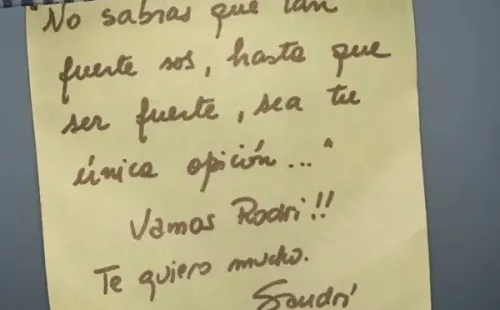 "No sabras que tan
fuerte sos, hasta que
ser fuerte, sea tu
única opición..."
Vamos Rodri!!
Te quiero mucho.
Sandri